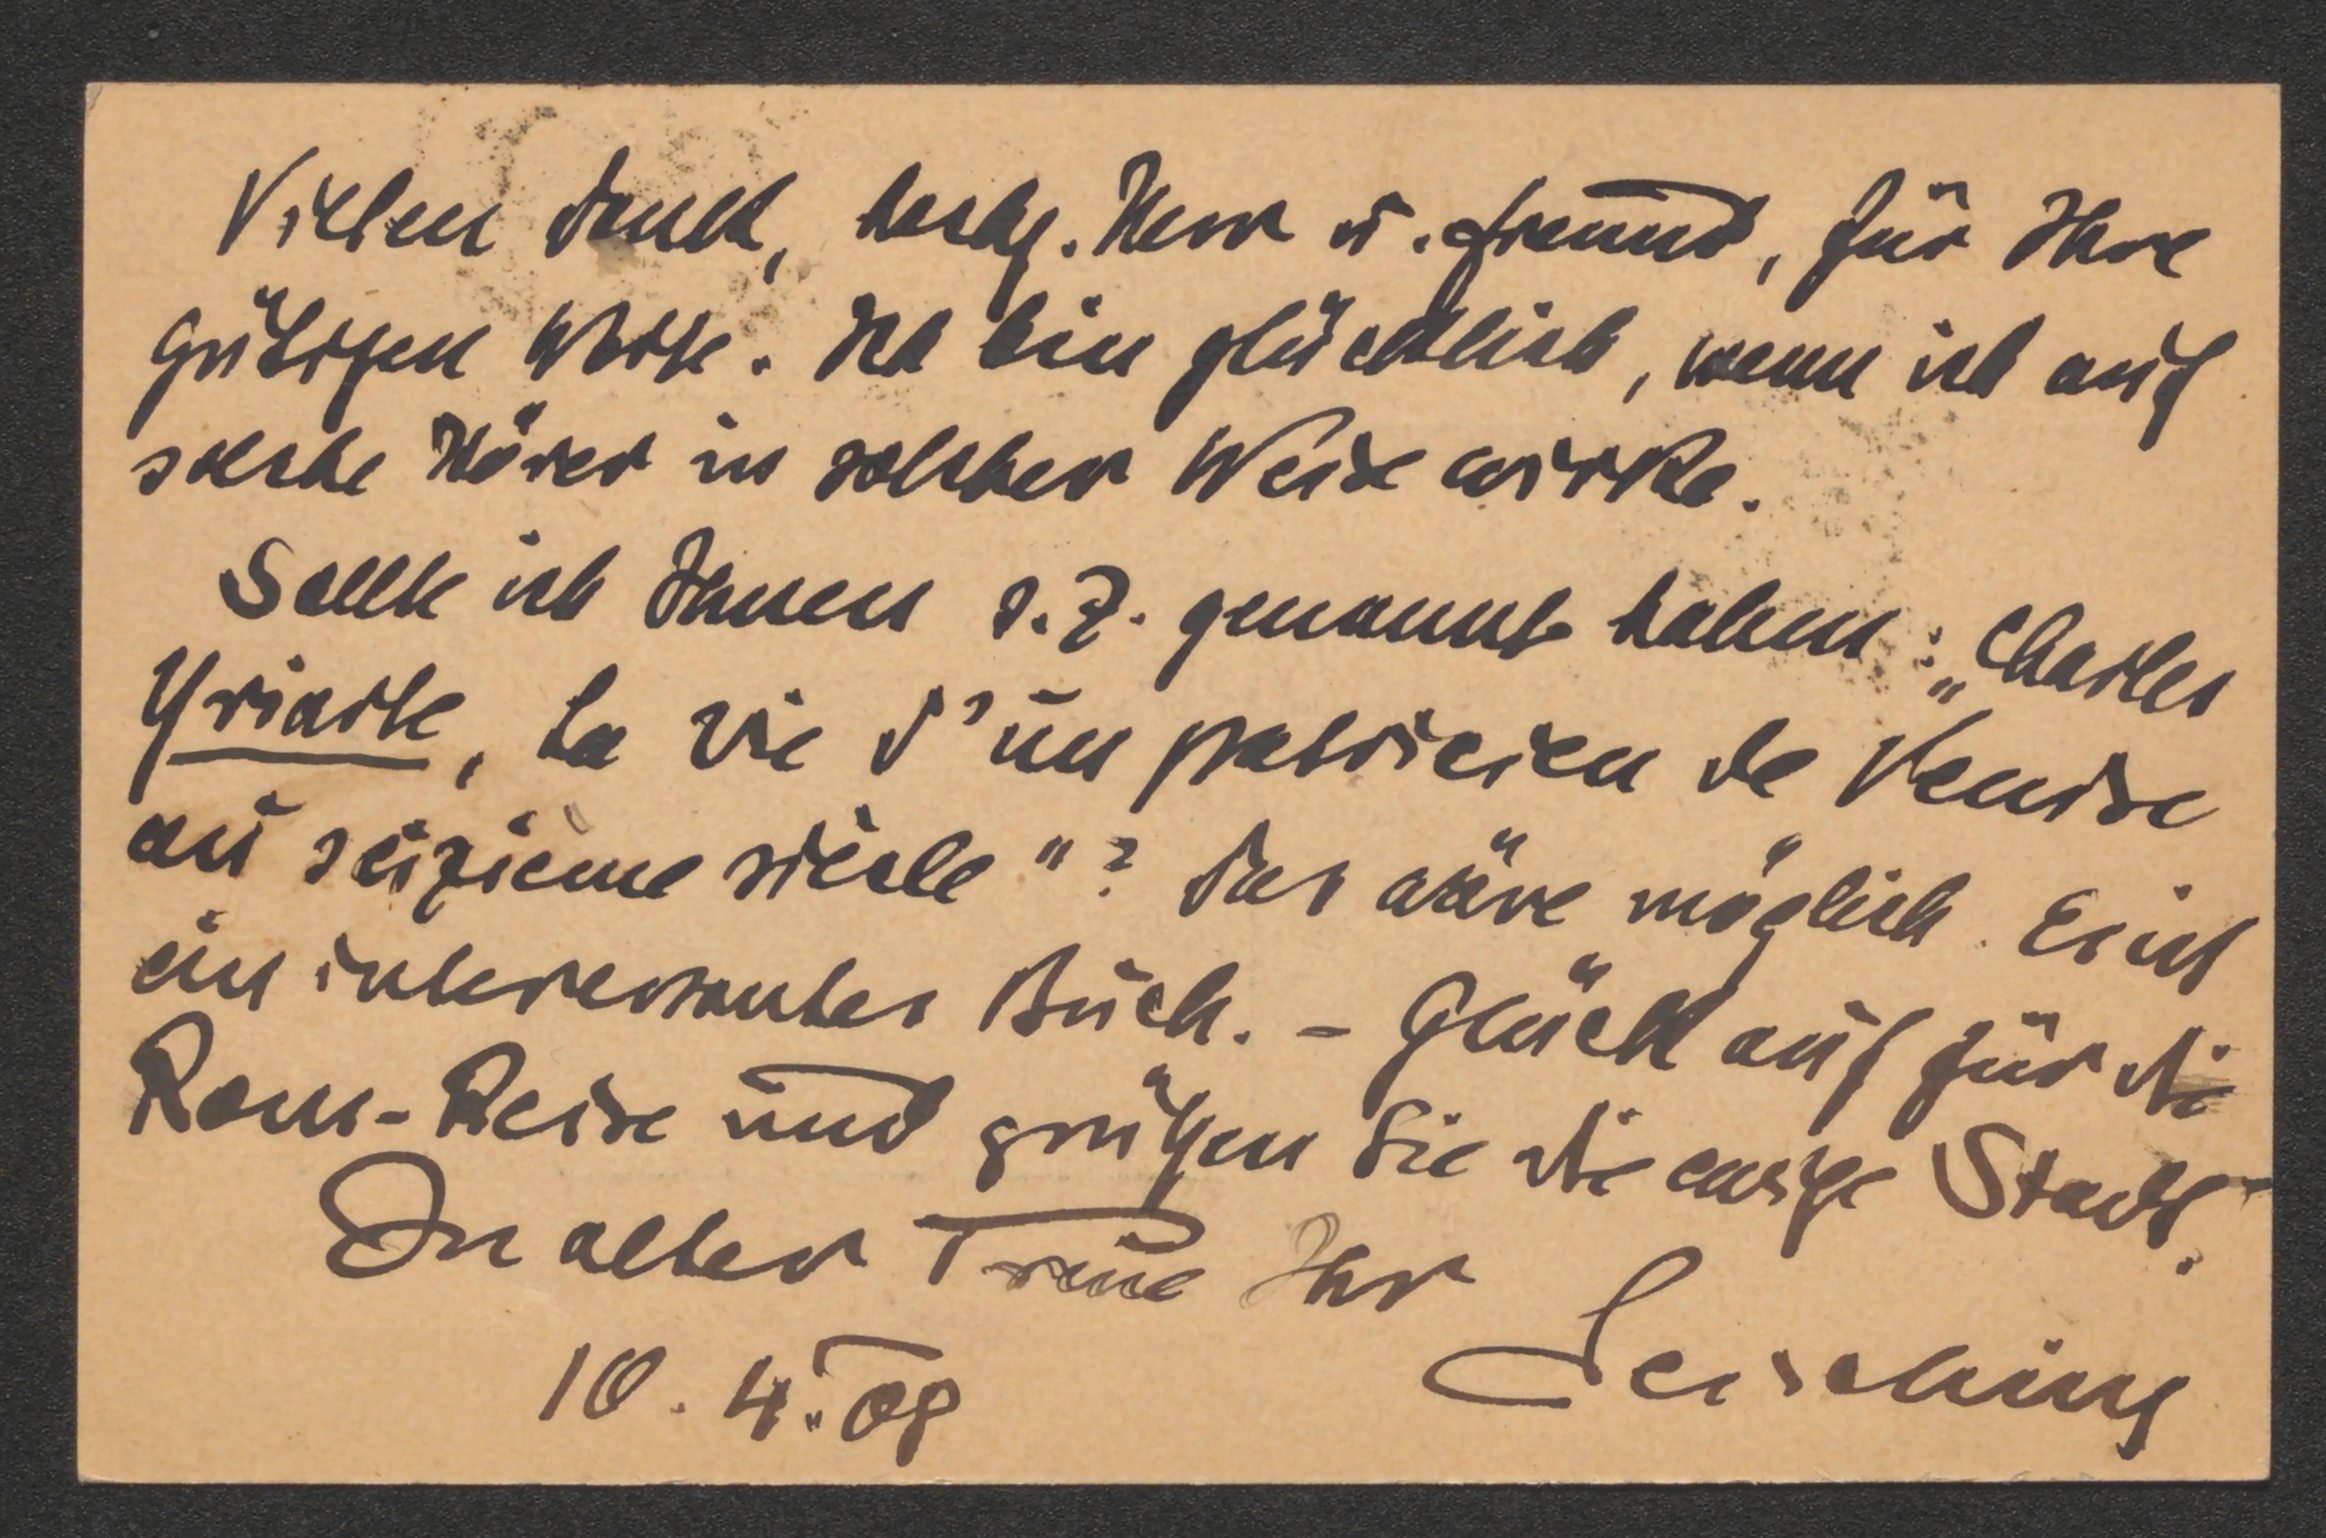 Vielen Dank, hochg. Herr u. Freund, für Ihre
gütigen Worte. Ich bin glücklich, wenn ich auf
solche Hörer in solcher Weise wirke.
Sollte ich Ihnen s. Z. genannt haben: „Charles
Yriarte, La vie d'un patricien de Venise
au seizième siècle"? Das wäre möglich. Es ist
ein interessantes Buch. - Glück auf für die
Rom-Reise und grüßen Sie die ewige Stadt.
In alter Treue Ihr
Leisching
10. 4. 08